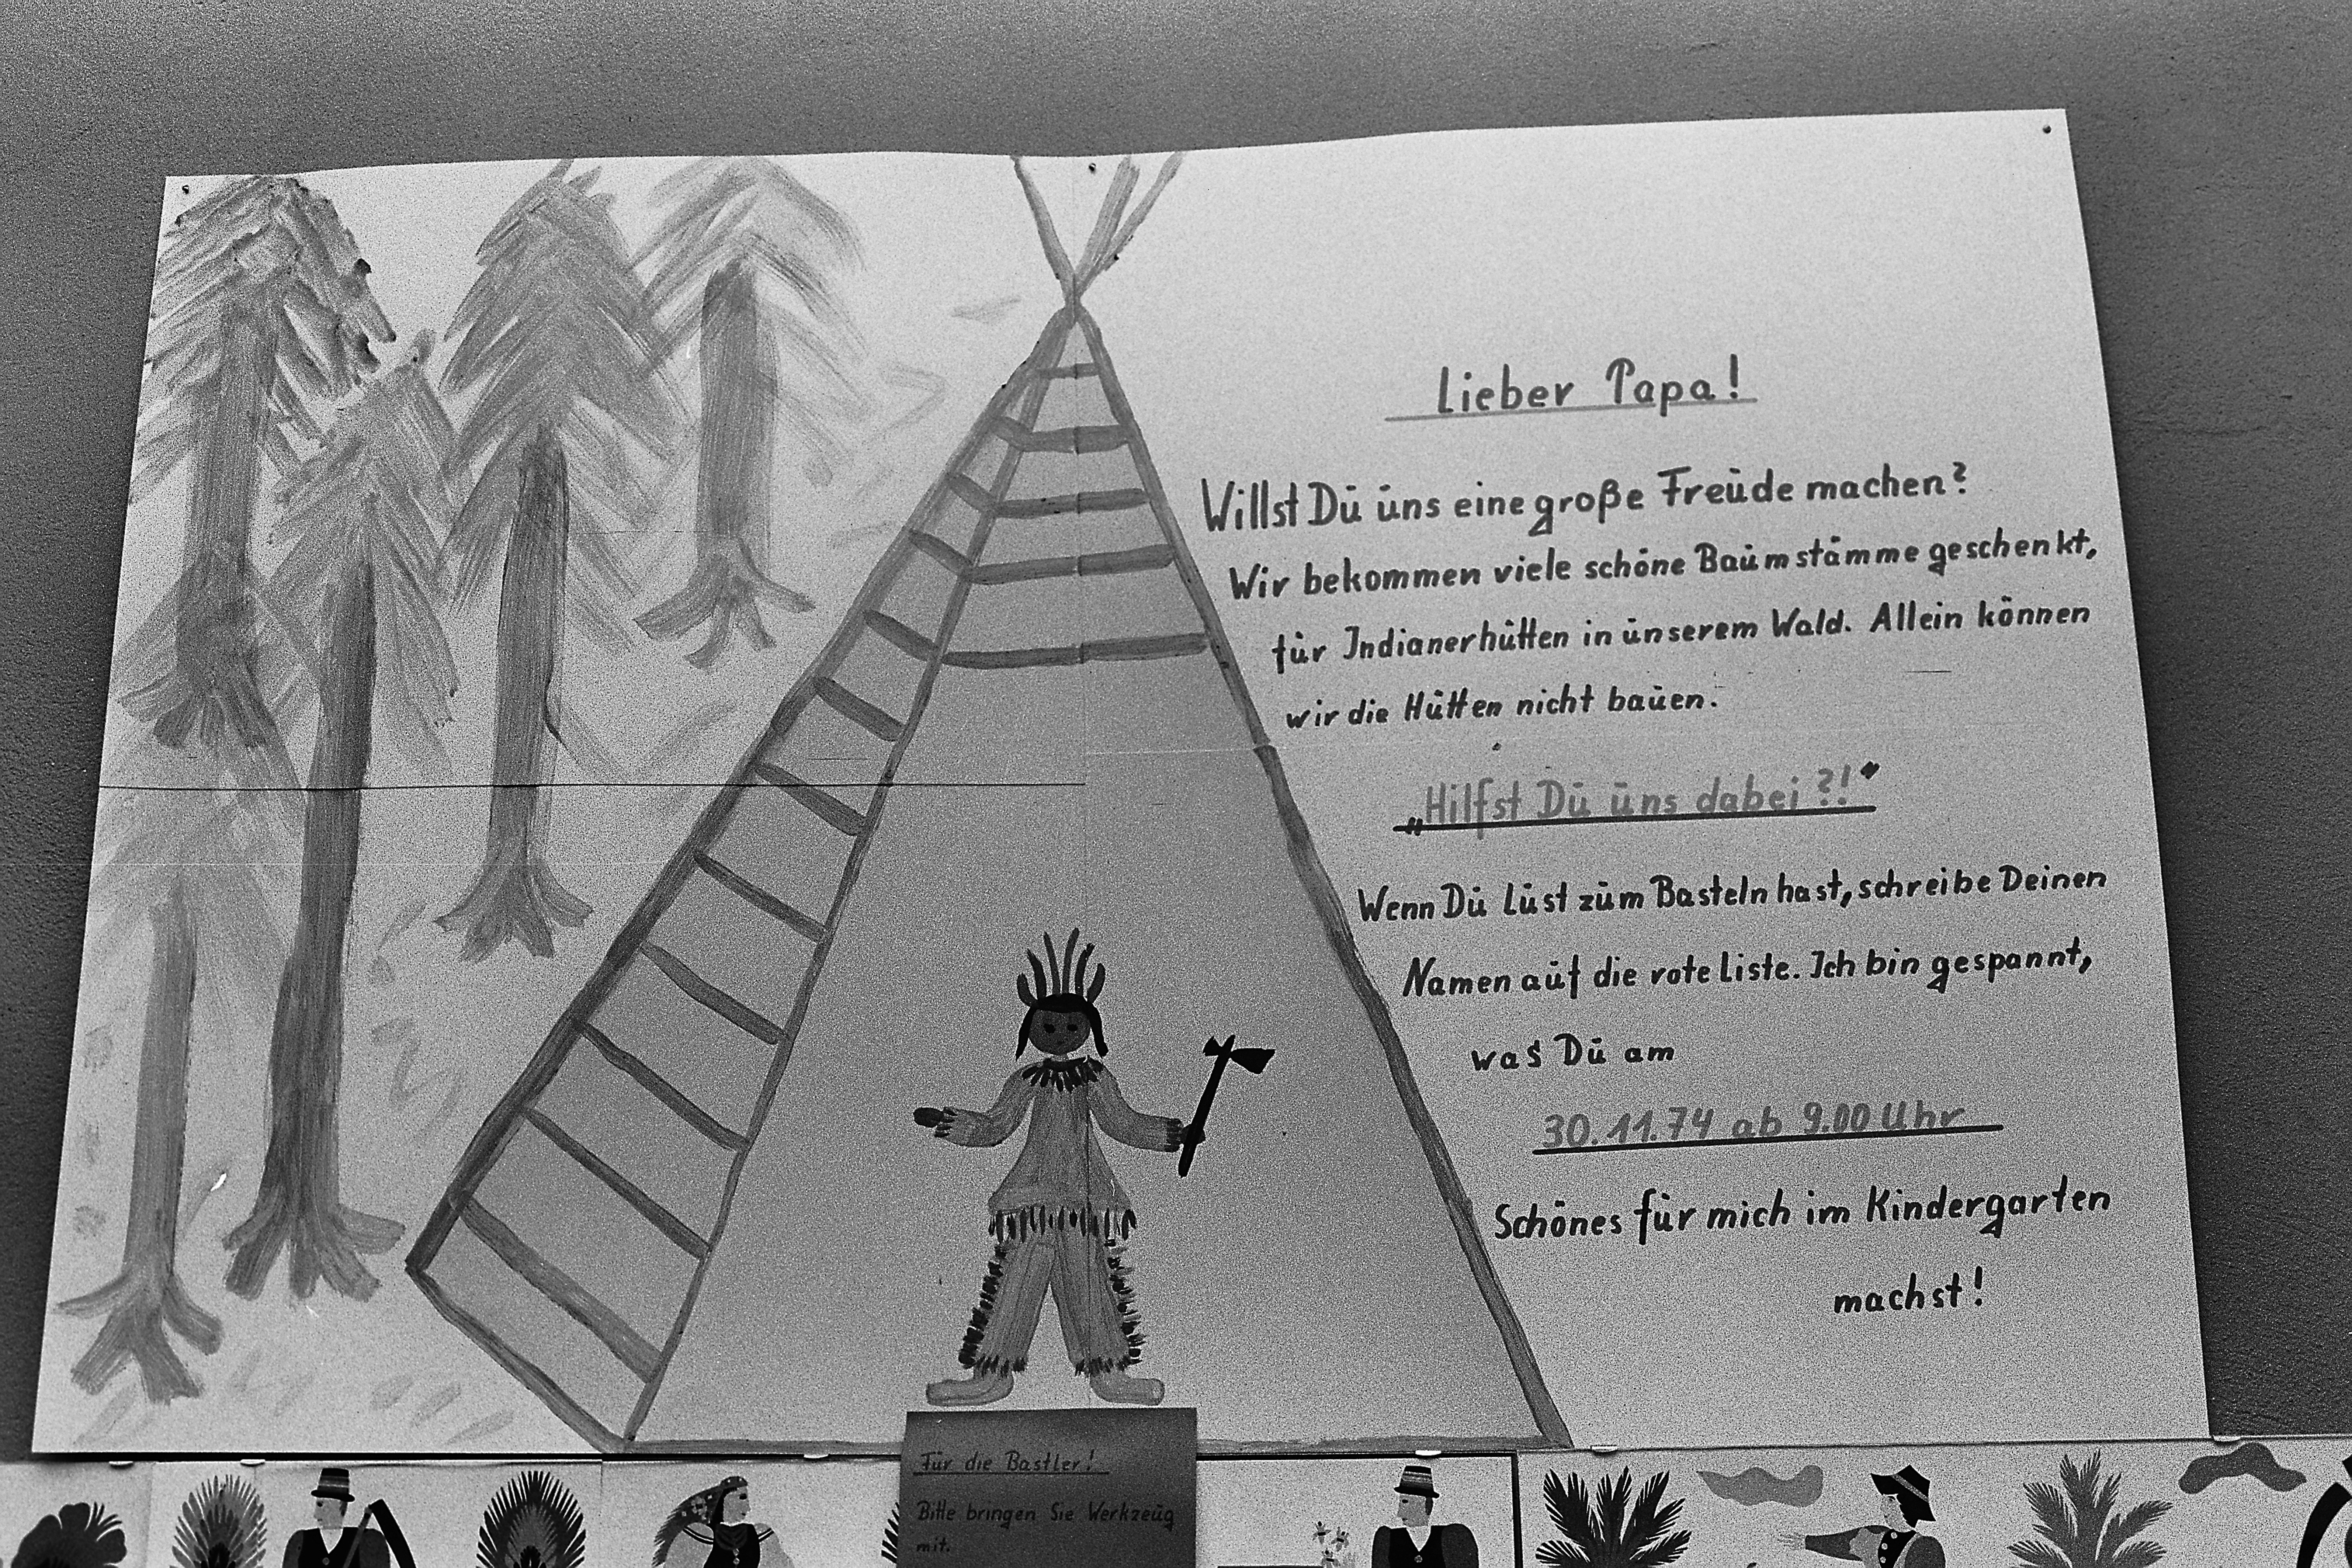 Lieber Papa!
Willst Du uns eine große Freude machen?
Wir bekommen viele schöne Baumstämme geschenkt,
für Indianerhütten in unserem Wald. Allein können
wir die Hütten nicht bauen.
„Hilfst Du uns dabei?!“
Wenn Du Lust zum Basteln hast, schreibe Deinen
Namen auf die rote Liste. Ich bin gespannt,
was Du am
30.11.74 ab 9.00 Uhr
Schönes für mich im Kindergarten
machst!
Für die Bastler!
Bitte bringen Sie Werkzeug
mit.